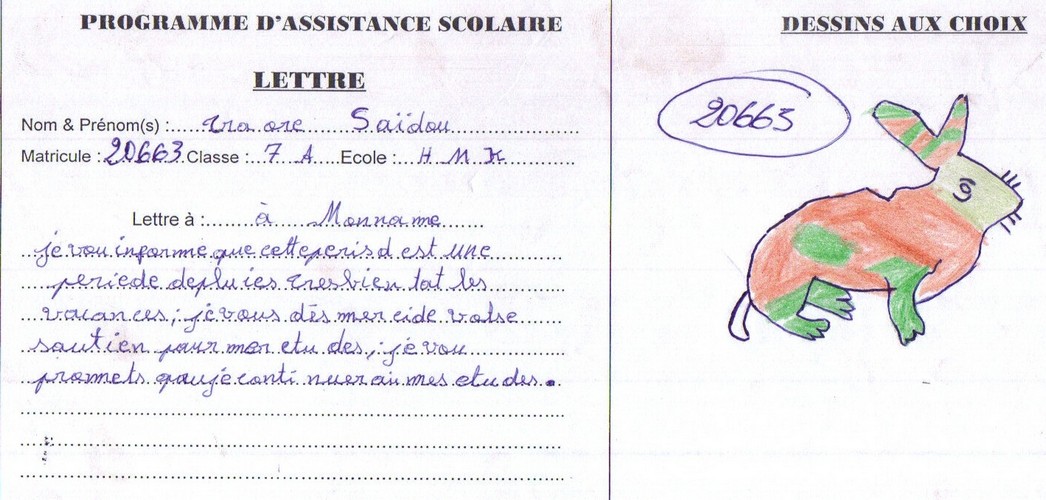 PROGRAMME D'ASSISTANCE SCOLAIRE
DESSINS AUX CHOIX
LETTRE
20663
Nom & Prénom(s) : Traore Saïdou
Matricule : 20663 Classe : 7 A Ecole : H M K
Lettre à : à Monname
je vou informe que cette perisd est une
periede depluies tresbien tat les
vacances, je vous dis mer cide votse
sautien pour mer etu des, je vou
promnets qouje conti nuerai mes etudes.